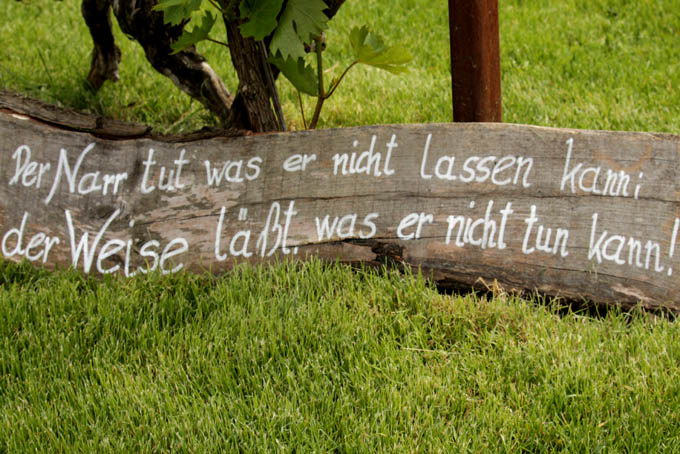 Der Narr tut was er nicht lassen kann;
der Weise läßt was er nicht tun kann!